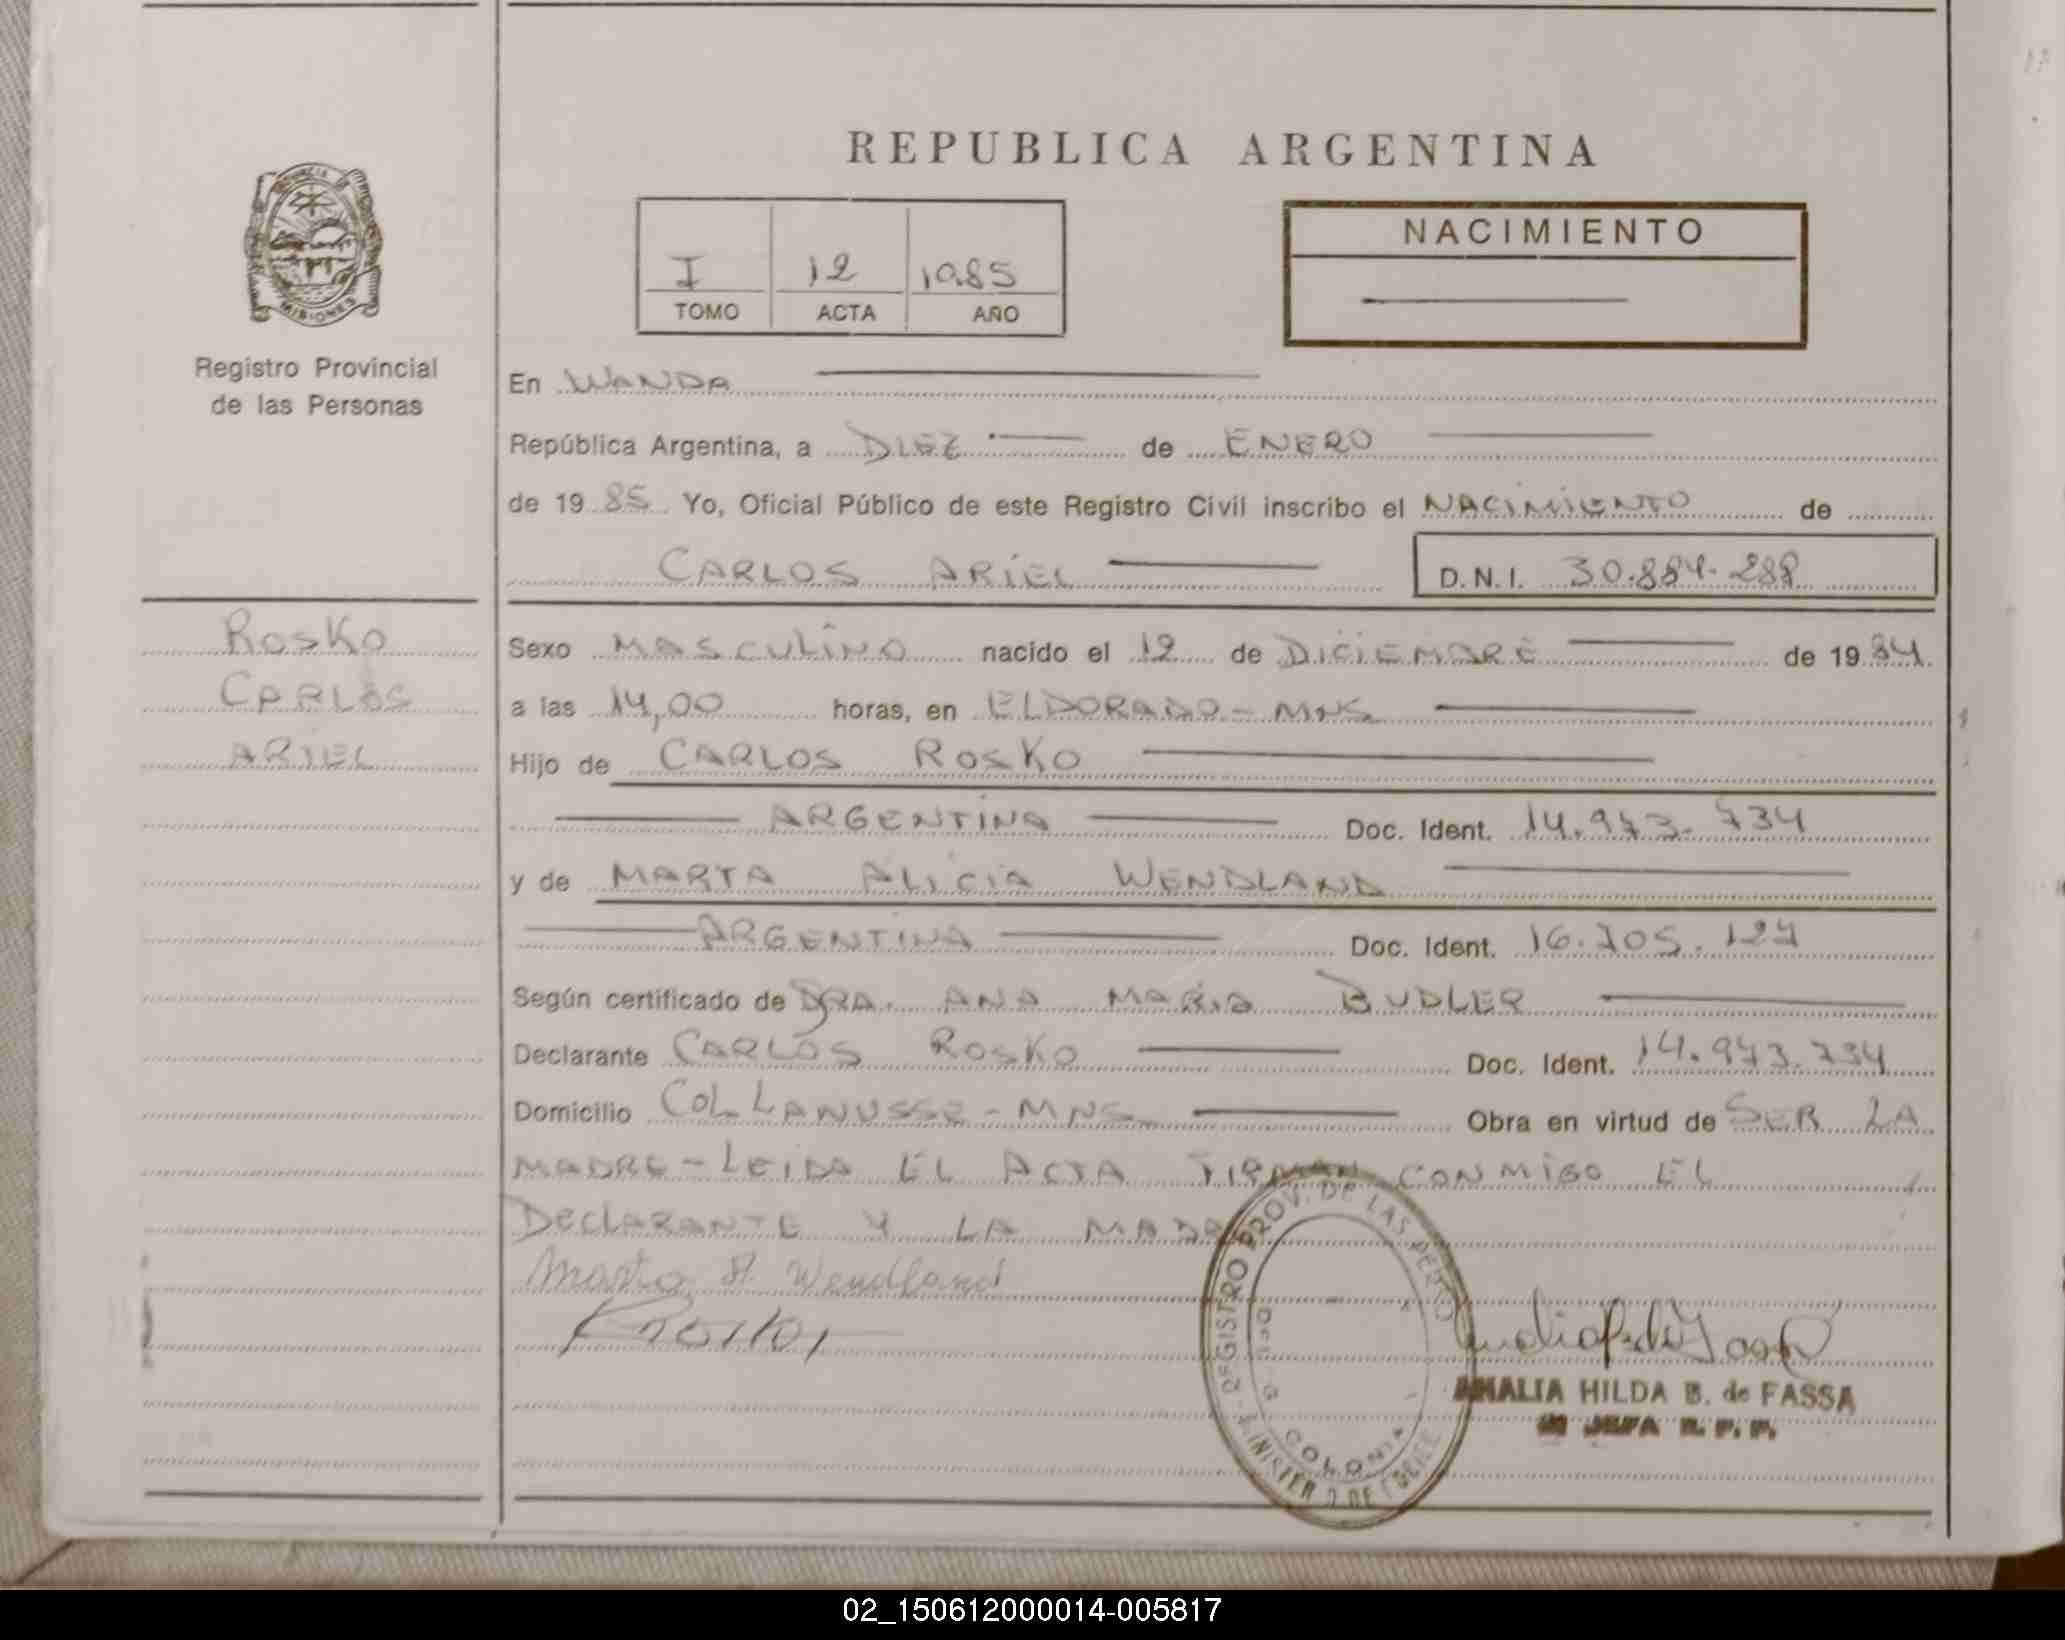 REPUBLICA ARGENTINA
I 12 1985
TOMO ACTA AÑO
NACIMIENTO
MISIONES
Registro Provincial
de las Personas
En WANDA
República Argentina, a DIEZ de ENERO
de 1985 Yo, Oficial Público de este Registro Civil inscribo el NACIMIENTO de
CARLOS ARIEL D.N.I. 30.884.288
ROSKO
CARLOS
ARIEL
Sexo MASCULINO nacido el 12 de DICIEMBRE de 1984
a las 14,00 horas, en ELDORADO - MNS
Hijo de CARLOS ROSKO
ARGENTINA Doc. Ident. 14.973.734
y de MARTA ALICIA WENDLAND
ARGENTINA Doc. Ident. 16.705.127
Según certificado de DRA. ANA MARIA BUDLER
Declarante CARLOS ROSKO Doc. Ident. 14.973.734
Domicilio COL LANUSSE - MNS Obra en virtud de SER LA
MADRE - LEIDA EL ACTA FIRMAN CONMIGO EL
DECLARANTE Y LA MADRE
Marta A. Wendland
REGISTRO PROV. DE LAS PERSO
COLONIA
AMALIA HILDA B. de FASSA
JEFA R. P. P.
02_150612000014-005817